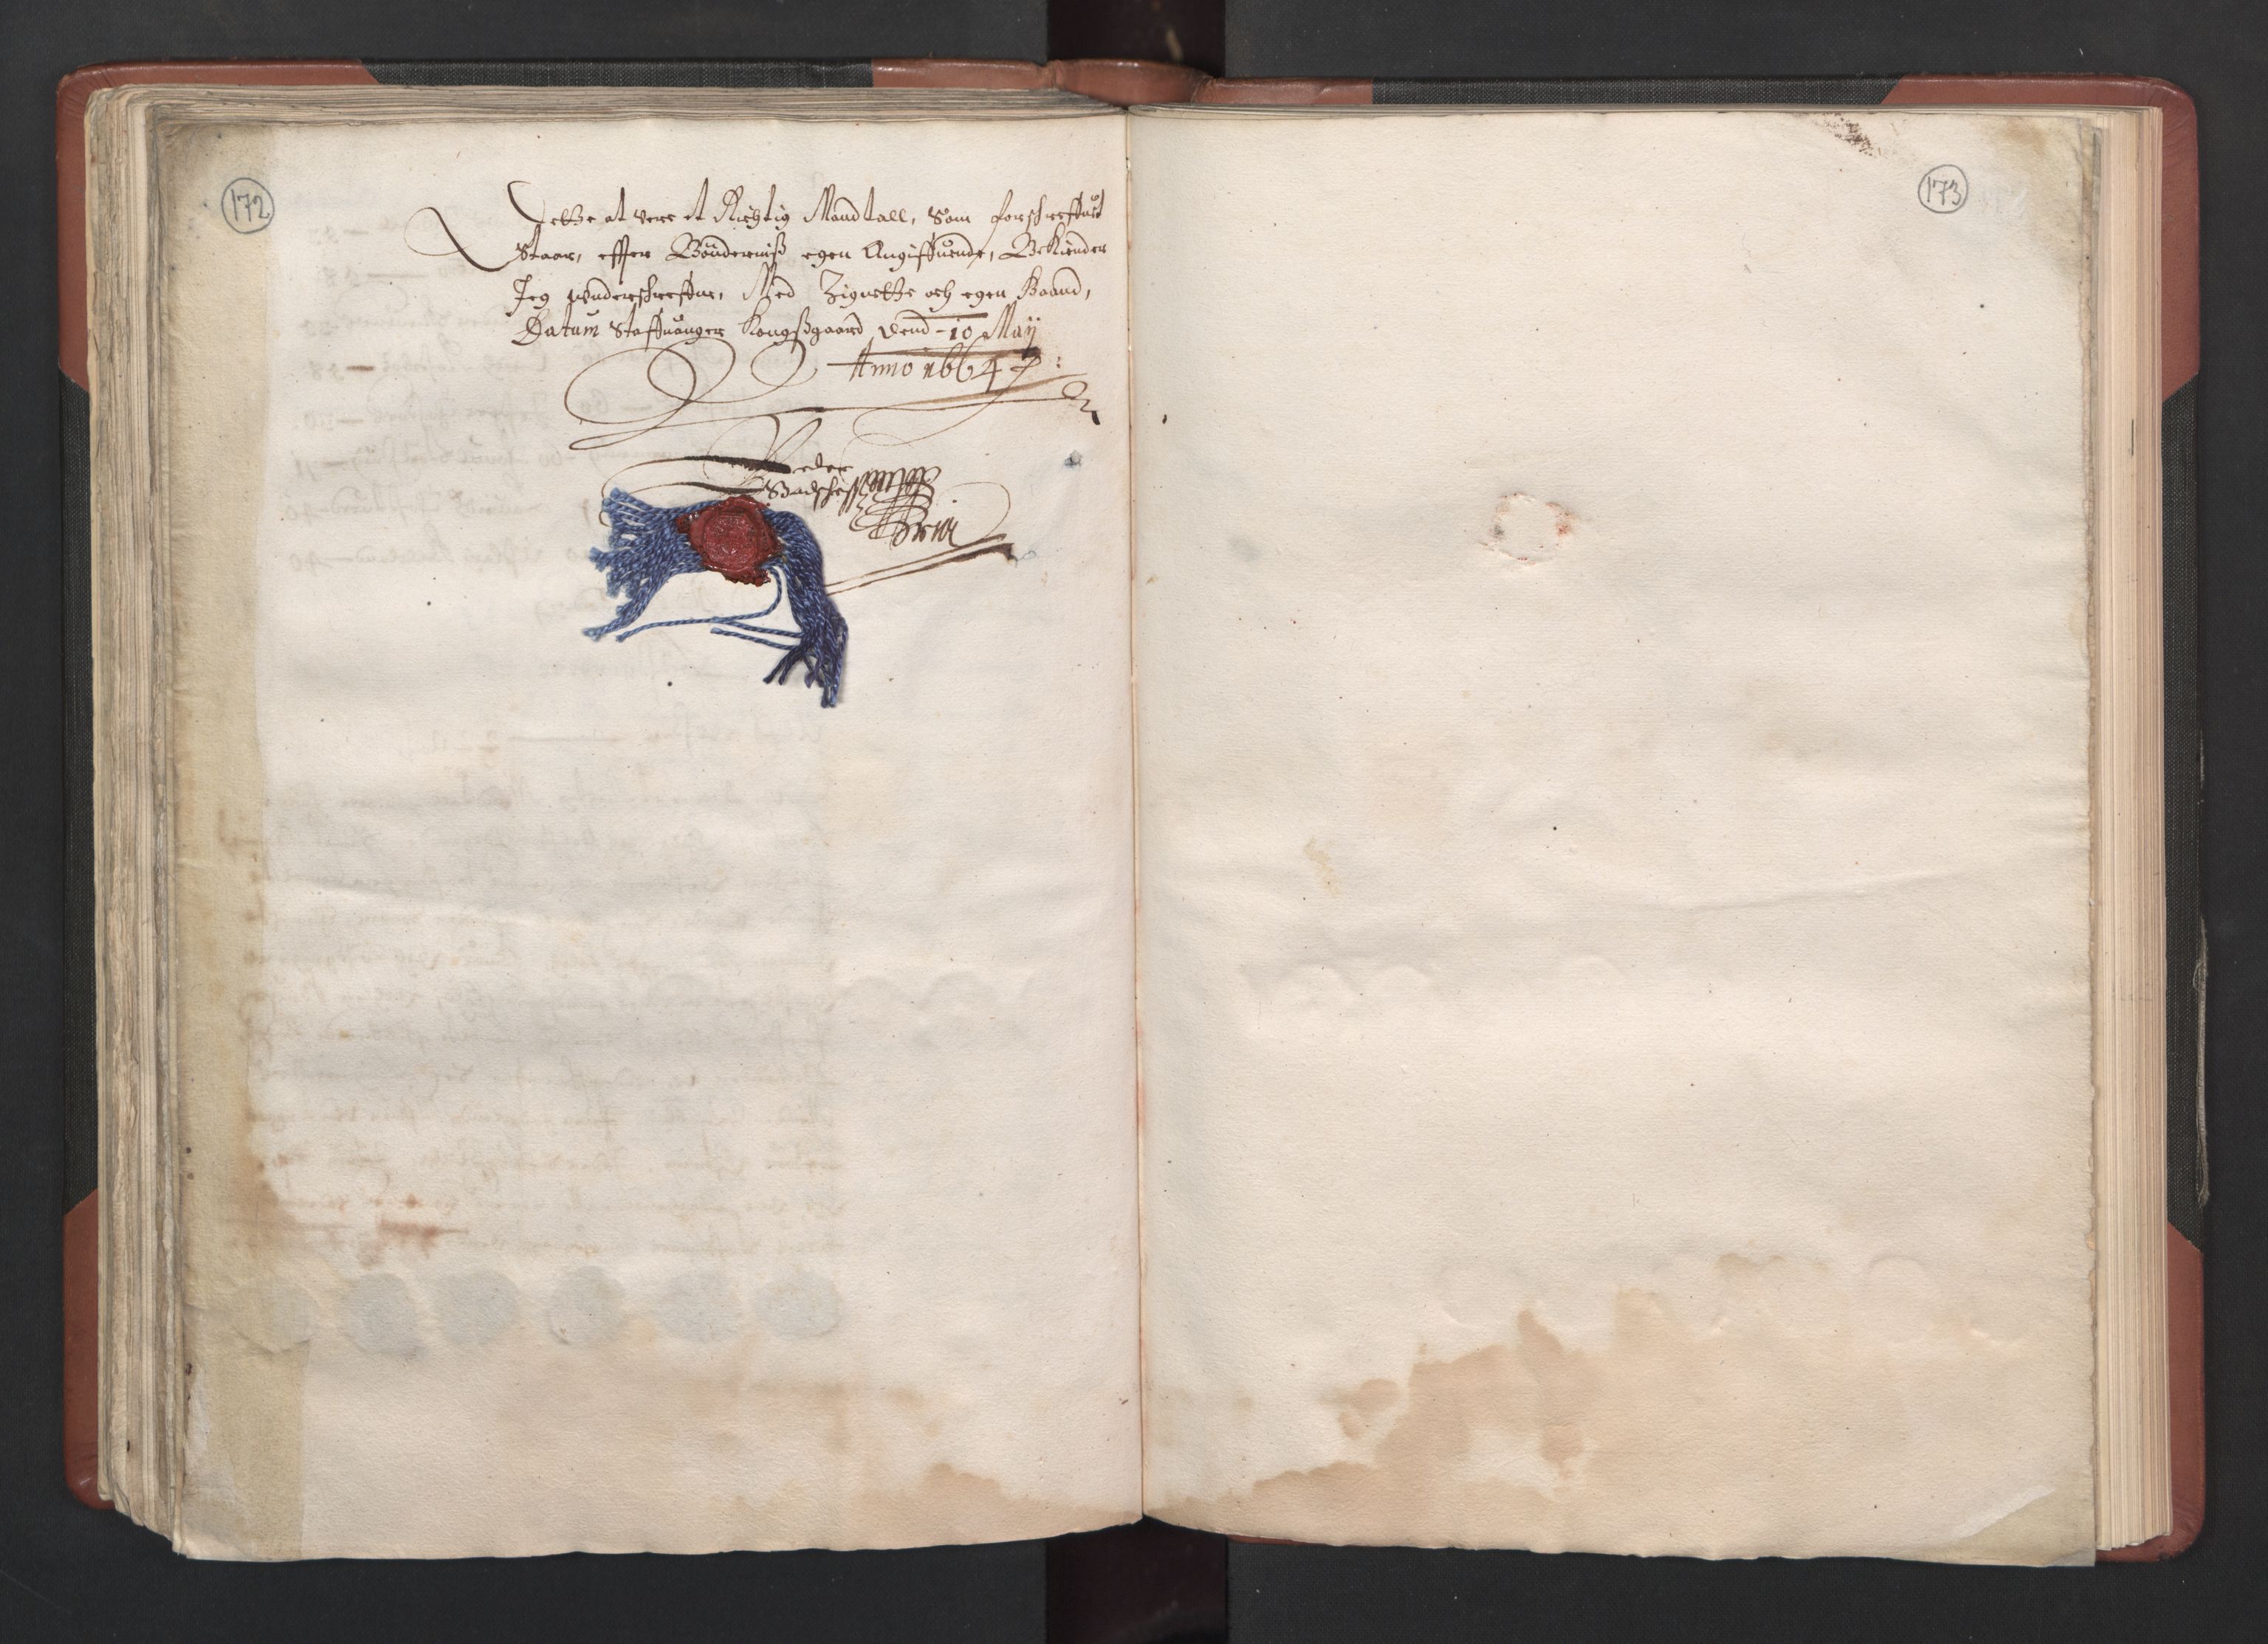 172
Dette at vere et Richtig Mandtall, Som forschreffuit
Staar, effter Bønderniß egen Angiffuende, Bekiender
Jeg underschreffne, Med Zignette och egen Haand,
Datum Staffuanger Kongßgaard dend 10 Maÿ
Anno 1664
Peder
173